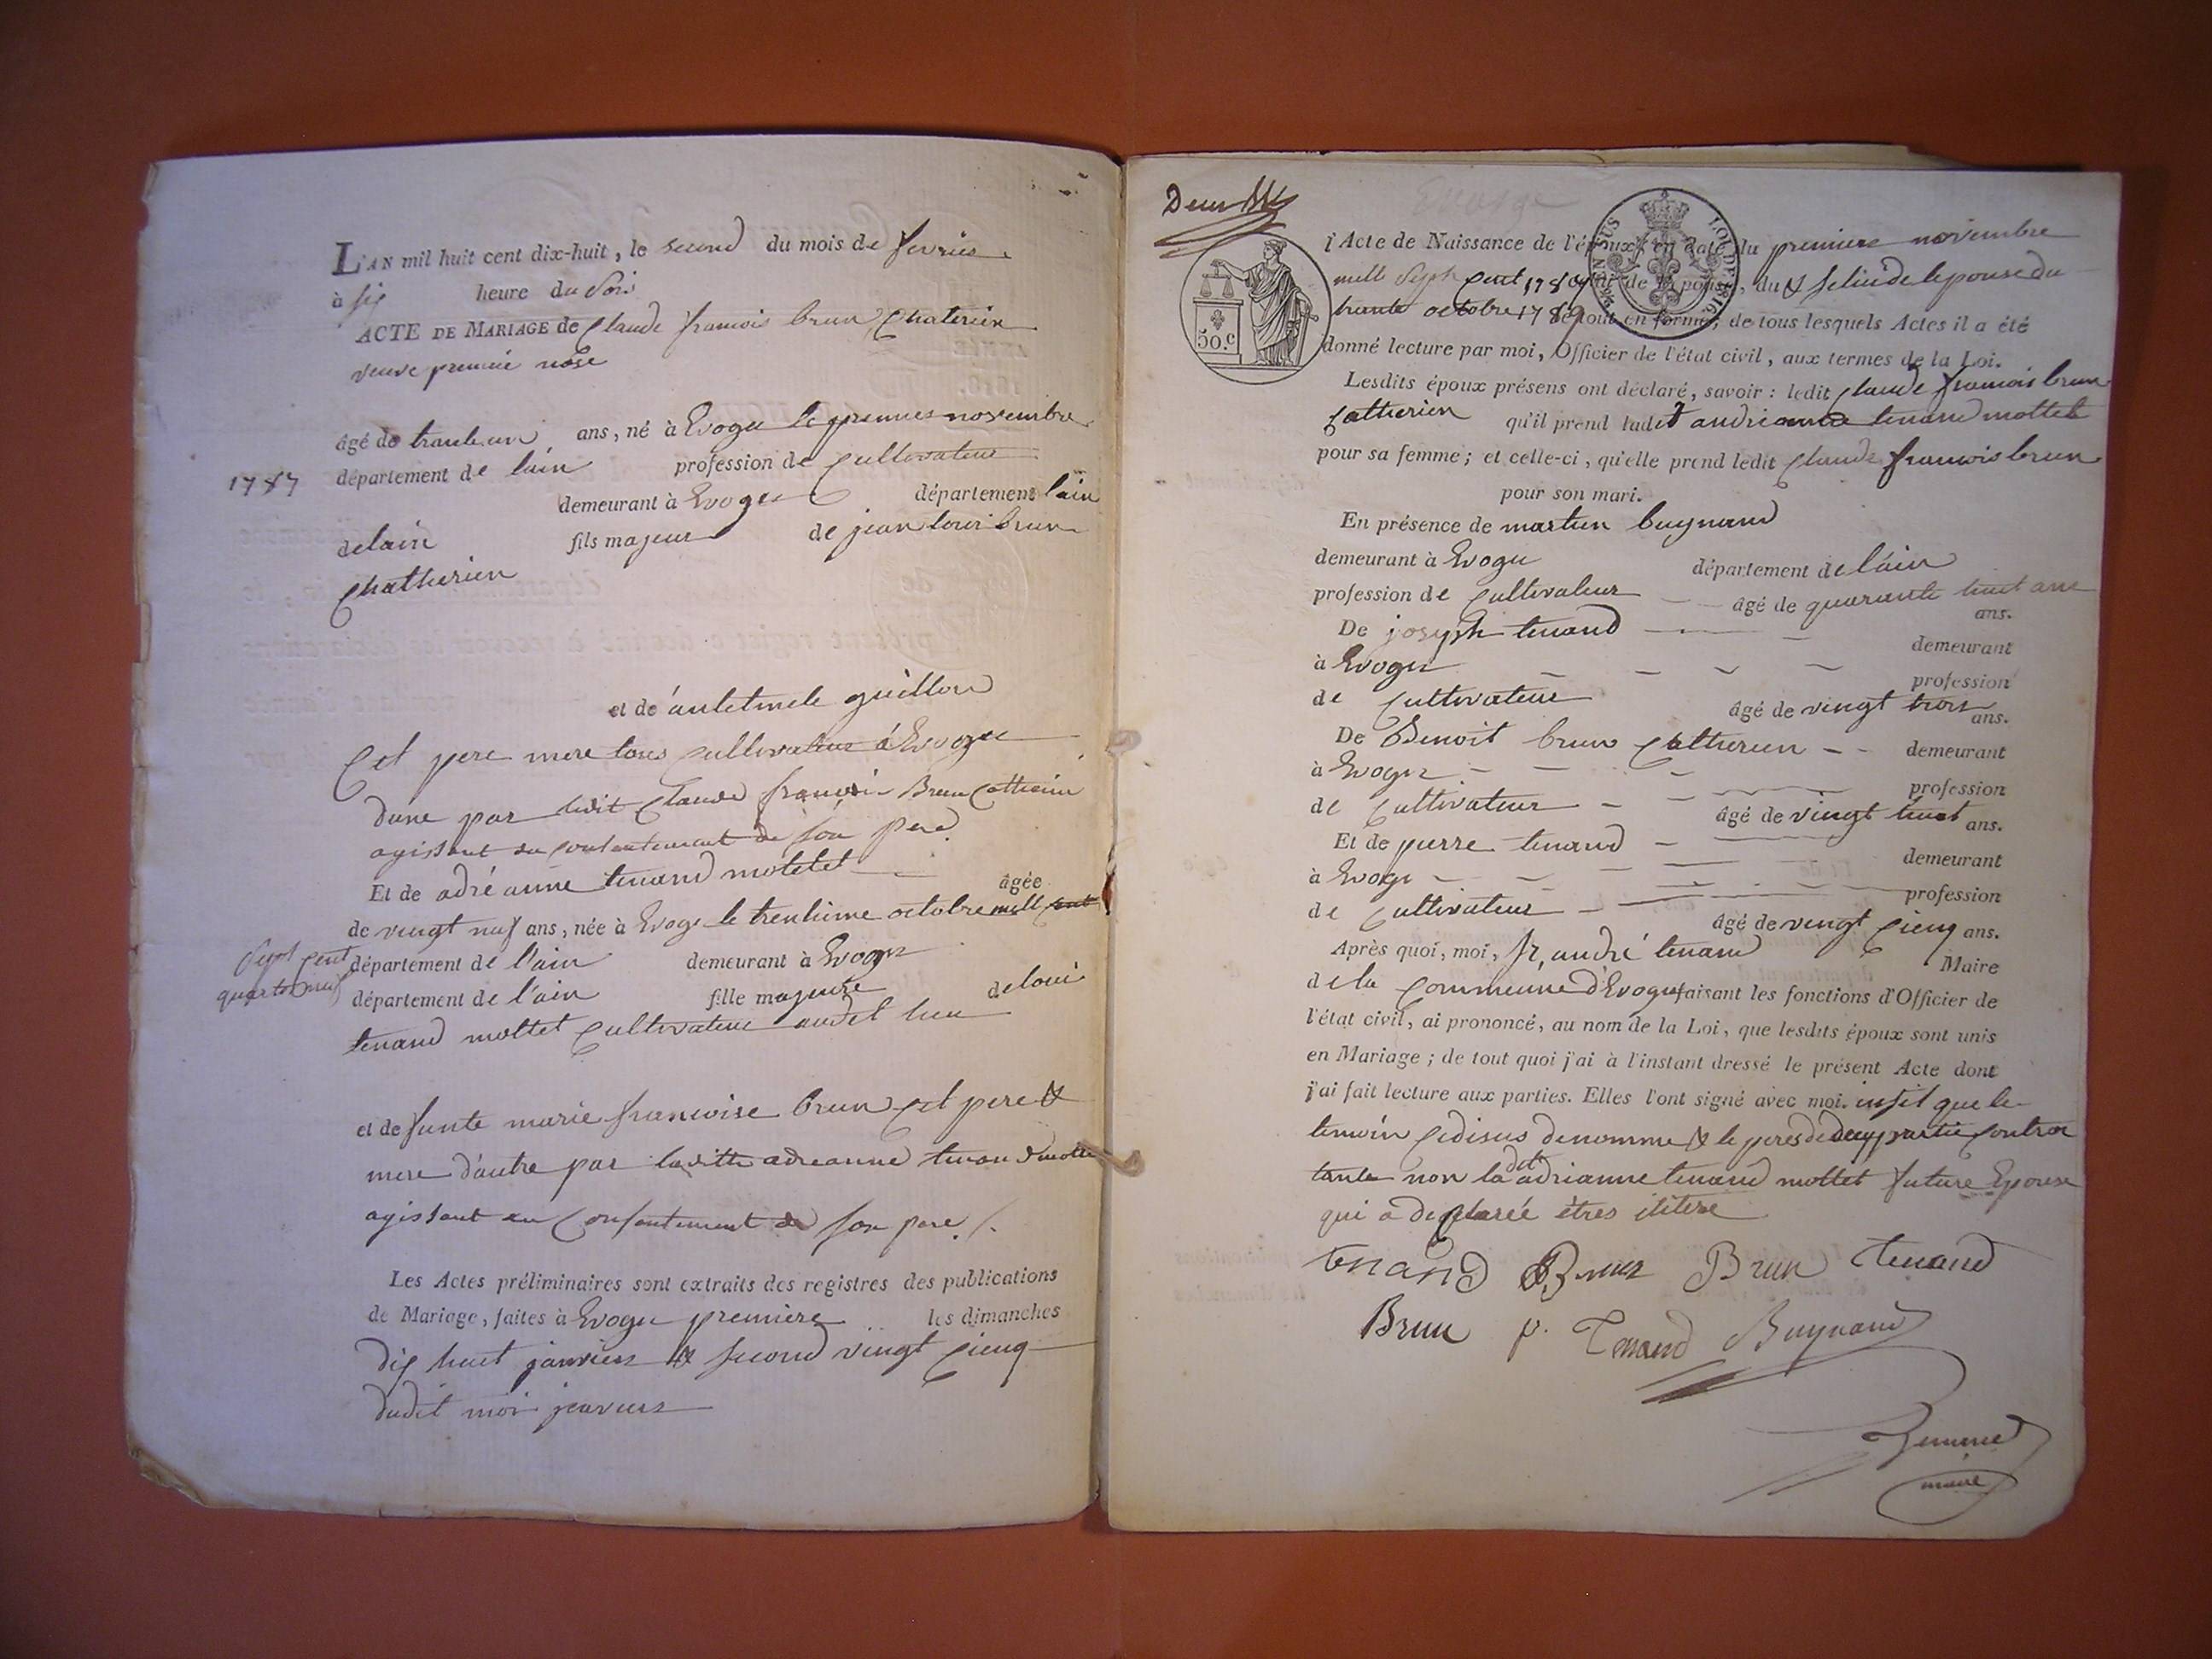 L'AN mil huit cent dix-huit, le second du mois de fevrier
à six heure du Soir
ACTE DE MARIAGE de Claude francois brun Chaterien
veuve premiere nose
âgé de trante un ans, né à Evoges le premier novembre
1787 département de lain profession de Cultivateur
demeurant à Evoges département lain
delain fils majeur de jean louis brun
Chatherien
et de anletmele guillon
Cet pere mere tous cultivateur à Evoges
dune par ledit Claude francois Brun Catherin
agissant du consentement de son pere
Et de adré anne tenand motetet âgée
de vingt nuf ans, née à Evoge le trentieme octobre mill cent
Sept cent département de l'ain demeurant à Evoges
département de l'ain fille majeure de loui
tenand mottet Cultivateur audit lieu
et de funte marie francoise brun Cet pere &
mere d'autre par laditte adreanne tenand motte
agissant au Consentement de son pere /.
Les Actes préliminaires sont extraits des registres des publications
de Mariage, faites à Evoges premiere les dimanches
dix huit janvier & second vingt cienq
dudit moi janvier
Deux
50.c
LOI DE 1816
l Acte de Naissance de l'époux, en date du premiere novembre
mill Sept Cent 1787 de l'épouse, du & Seluide lepouse du
trante octobre 1789 le tout en forme; de tous lesquels Actes il a été
donné lecture par moi, Officier de l'état civil, aux termes de la Loi.
Lesdits époux présens ont déclaré, savoir: ledit Claude francois brun
Catherien qu'il prend ladit andrianne tenand mottet
pour sa femme; et celle-ci, qu'elle prend ledit Claude francois brun
pour son mari.
En présence de martin buynand
demeurant à Evoges département de l'ain
profession de Cultivateur âgé de quarante huit ans
ans.
De joseph tenand demeurant
à Evoges profession
de Cultivateur âgé de vingt trois ans.
De Benoit brun Catherien demeurant
à Evoges profession
de Cultivateur âgé de vingt huit ans.
Et de pierre tenand demeurant
à Evoges profession
de Cultivateur âgé de vingt Cienq ans.
Après quoi, moi, fr, andré tenand Maire
de la Commeune d'Evoges faisant les fonctions d'Officier de
l'état civil, ai prononcé, au nom de la Loi, que lesdits époux sont unis
en Mariage; de tout quoi j'ai à l'instant dressé le présent Acte dont
j'ai fait lecture aux parties. Elles l'ont signé avec moi. insit que le
temoin Cidisus denomme & le peres de deux partie Contrac
tante non la dit adrianne tenand mottet future Epouse
qui a declarée êtres iletere
tenand Brun Brun tenand
Brun p. Tenand Buynand
maire